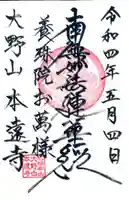 令和四年五月四日
南無妙法蓮華経
養珠院お萬様
大野山 本遠寺